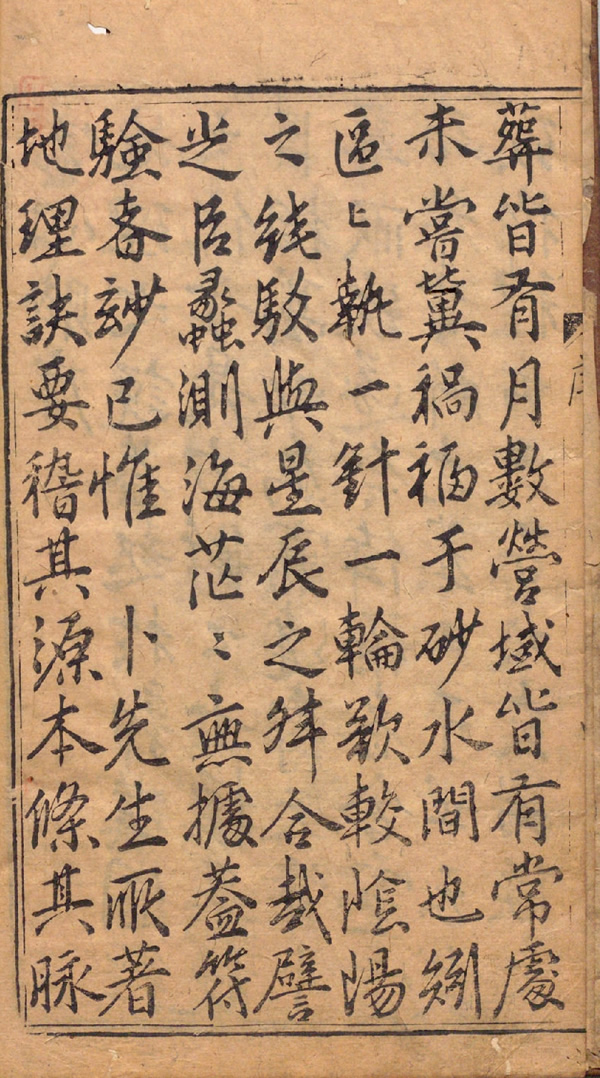 葬皆有月數營域皆有常處
未嘗冀禍福于砂水間也矧
區〻執一針一輪欲較陰陽
之純駁與星辰之舛合哉譬
之㠯蠡測海茫〻無據蓋符
驗春玅已惟　卜先生所著
地理訣要稽其源本條其脉